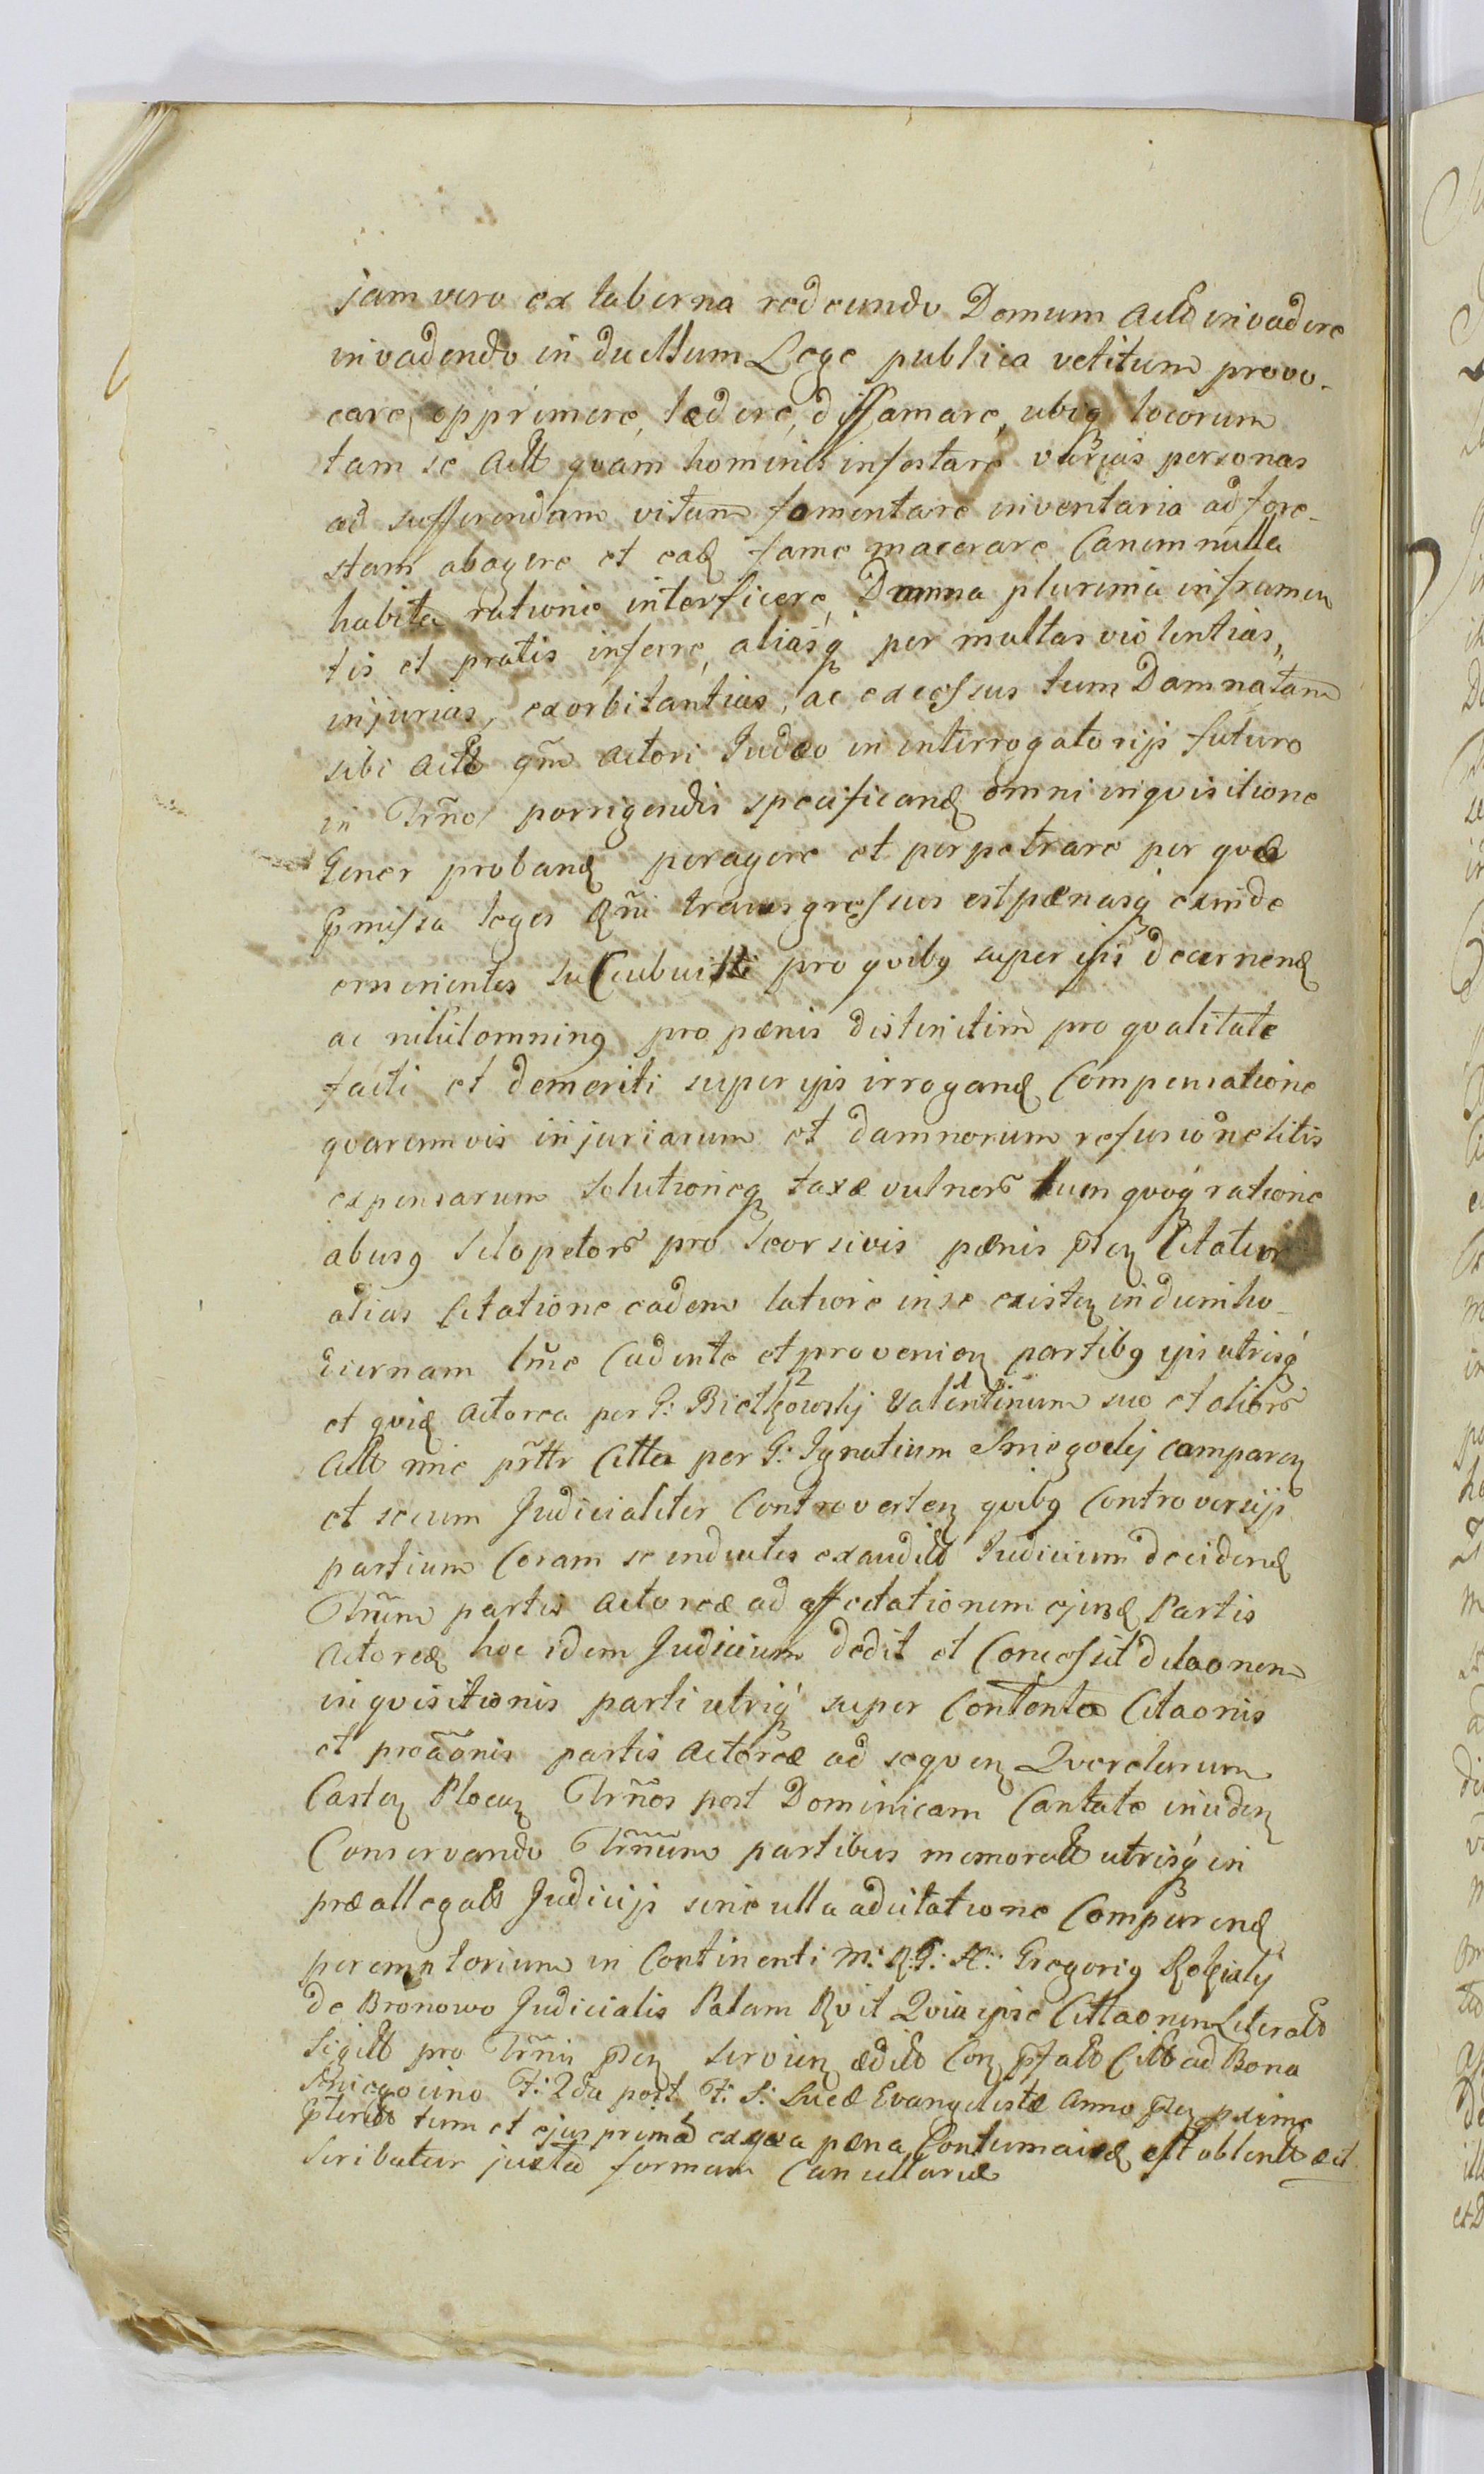 jam vero ex taberna redeundo Domum Actt invadere
invadendo in duellum Lege publica vetitum provo-
care, opprimere, lædere, diffamare, ubiq locorum
tam se Actt quam homines infestare varias personas
ad sufferendam vitam fomentare inventaria ad fore-
stam abagere et ead fame macerare Canem nulla
habita ratione interficere, Damna plurima in frumen
tis et pratis inferre, aliasq per multas violentias,
injurias, exorbitantias, ac excessus tum Damna tam
sibi Actt qm̃ Actori Judæo in interrogatorijs futuro
in Trño porrigendis specificand omni inqvisitione
Gener proband peragere et perpetrare per qvæ
p̃missa leges Rñi transgressus est pænasq exinde
emerientes succubuisti pro qvibq super ipis decernend
ac nihilominq pro pænis distinctim pro qvalitate
facti et demeriti super ipis irrogand Compensatione
qvarumvis injuriarum et damnorum refusione litis
expensarum solutioneq taxæ vulnerũ tum qvoq ratione
abusq sclopetorũ pro seorsivis pænis p̃sen Citatur
alias Citatione eadem latiore in se existen in diem ho-
diernam lm̃e Cadente et provenien partibq ipis utrisq
et qvid Actorea per G: Bietkowskj Valentinum suo et aliorũ
Actt nñe prñttr Citta per G: Ignatium Smiegockj comparen
et secum Judicialiter Controverten qvibq Controversijs
partium Coram se inductis exaudito Judicium decidend
Trñum partis Actoreæ ad affectationem ejusd Partis
Actoreæ hoc idem Judicium dedit et Concessit dilaonem
inqvisitionis parti utriq super Contenta Citaonis
et proãõnis partis Actoreæ ad seqven Qverelarum
Casten Plocen Trños post Dominicam Cantate inciden
Conservando Trñum partibus memoratt utrisq in
præallegatt Judicijs sine ulla adcitatione Comparend
peremptorium in Continenti M: R: G: H: Gregoriq Rokickj
de Bronowo Judicialis Palam Rvit Qvia ipse Cittaonem Literatt
Sigill pro Trñis p̃sen servien ædito Con p̃fatt Citt ad Bona
Smiegocino F: 2da post F: S: Lucæ Evangelistæ Anno p̃sen pxime
p̃terito tum et ejus primad ex qva pæna Contumaciæ est obtent æ et
scribatur juxta formam Cancellariæ